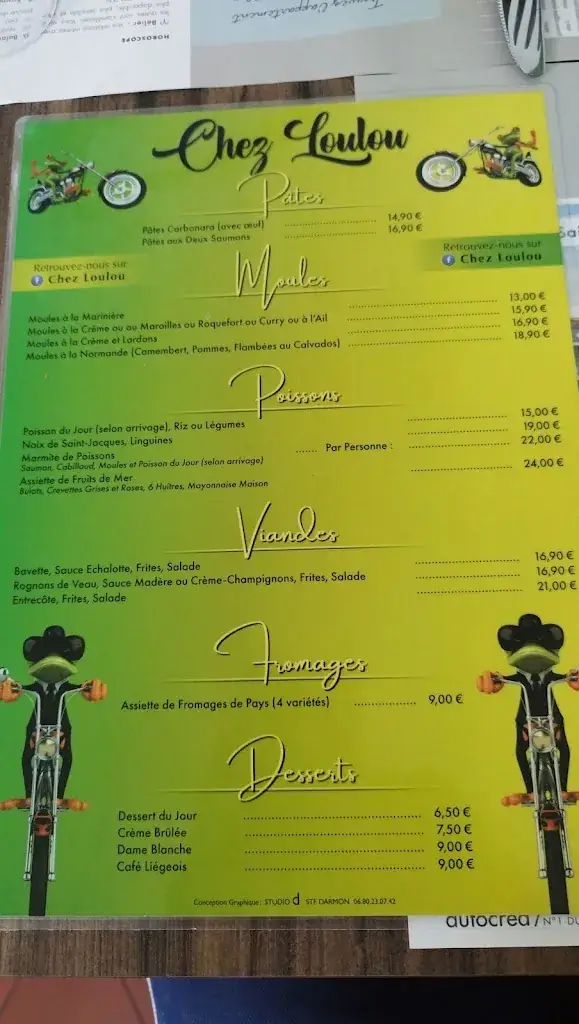 HOROSCOPE
Chez Loulou
Pâtes
Pâtes Carbonara (avec œuf) 14,90 €
Pâtes aux Deux Saumons 16,90 €
Retrouvez-nous sur
f Chez Loulou
Retrouvez-nous sur
f Chez Loulou
Moules
Moules à la Marinière 13,00 €
Moules à la Crême ou au Maroilles ou Roquefort ou Curry ou à l'Ail 15,90 €
Moules à la Crême et Lardons 16,90 €
Moules à la Normande (Camembert, Pommes, Flambées au Calvados) 18,90 €
Poissons
Poisson du Jour (selon arrivage), Riz ou Légumes 15,00 €
Noix de Saint-Jacques, Linguines 19,00 €
Marmite de Poissons Par Personne : 22,00 €
Saumon, Cabillaud, Moules et Poisson du Jour (selon arrivage)
Assiette de Fruits de Mer 24,00 €
Bulots, Crevettes Grises et Roses, 6 Huîtres, Mayonnaise Maison
Viandes
Bavette, Sauce Echalotte, Frites, Salade 16,90 €
Rognons de Veau, Sauce Madère ou Crème-Champignons, Frites, Salade 16,90 €
Entrecôte, Frites, Salade 21,00 €
Fromages
Assiette de Fromages de Pays (4 variétés) 9,00 €
Desserts
Dessert du Jour 6,50 €
Crème Brûlée 7,50 €
Dame Blanche 9,00 €
Café Liégeois 9,00 €
Conception Graphique : STUDIO d STF DARMON 06.80.23.07.42
autocrea / N°1 DU